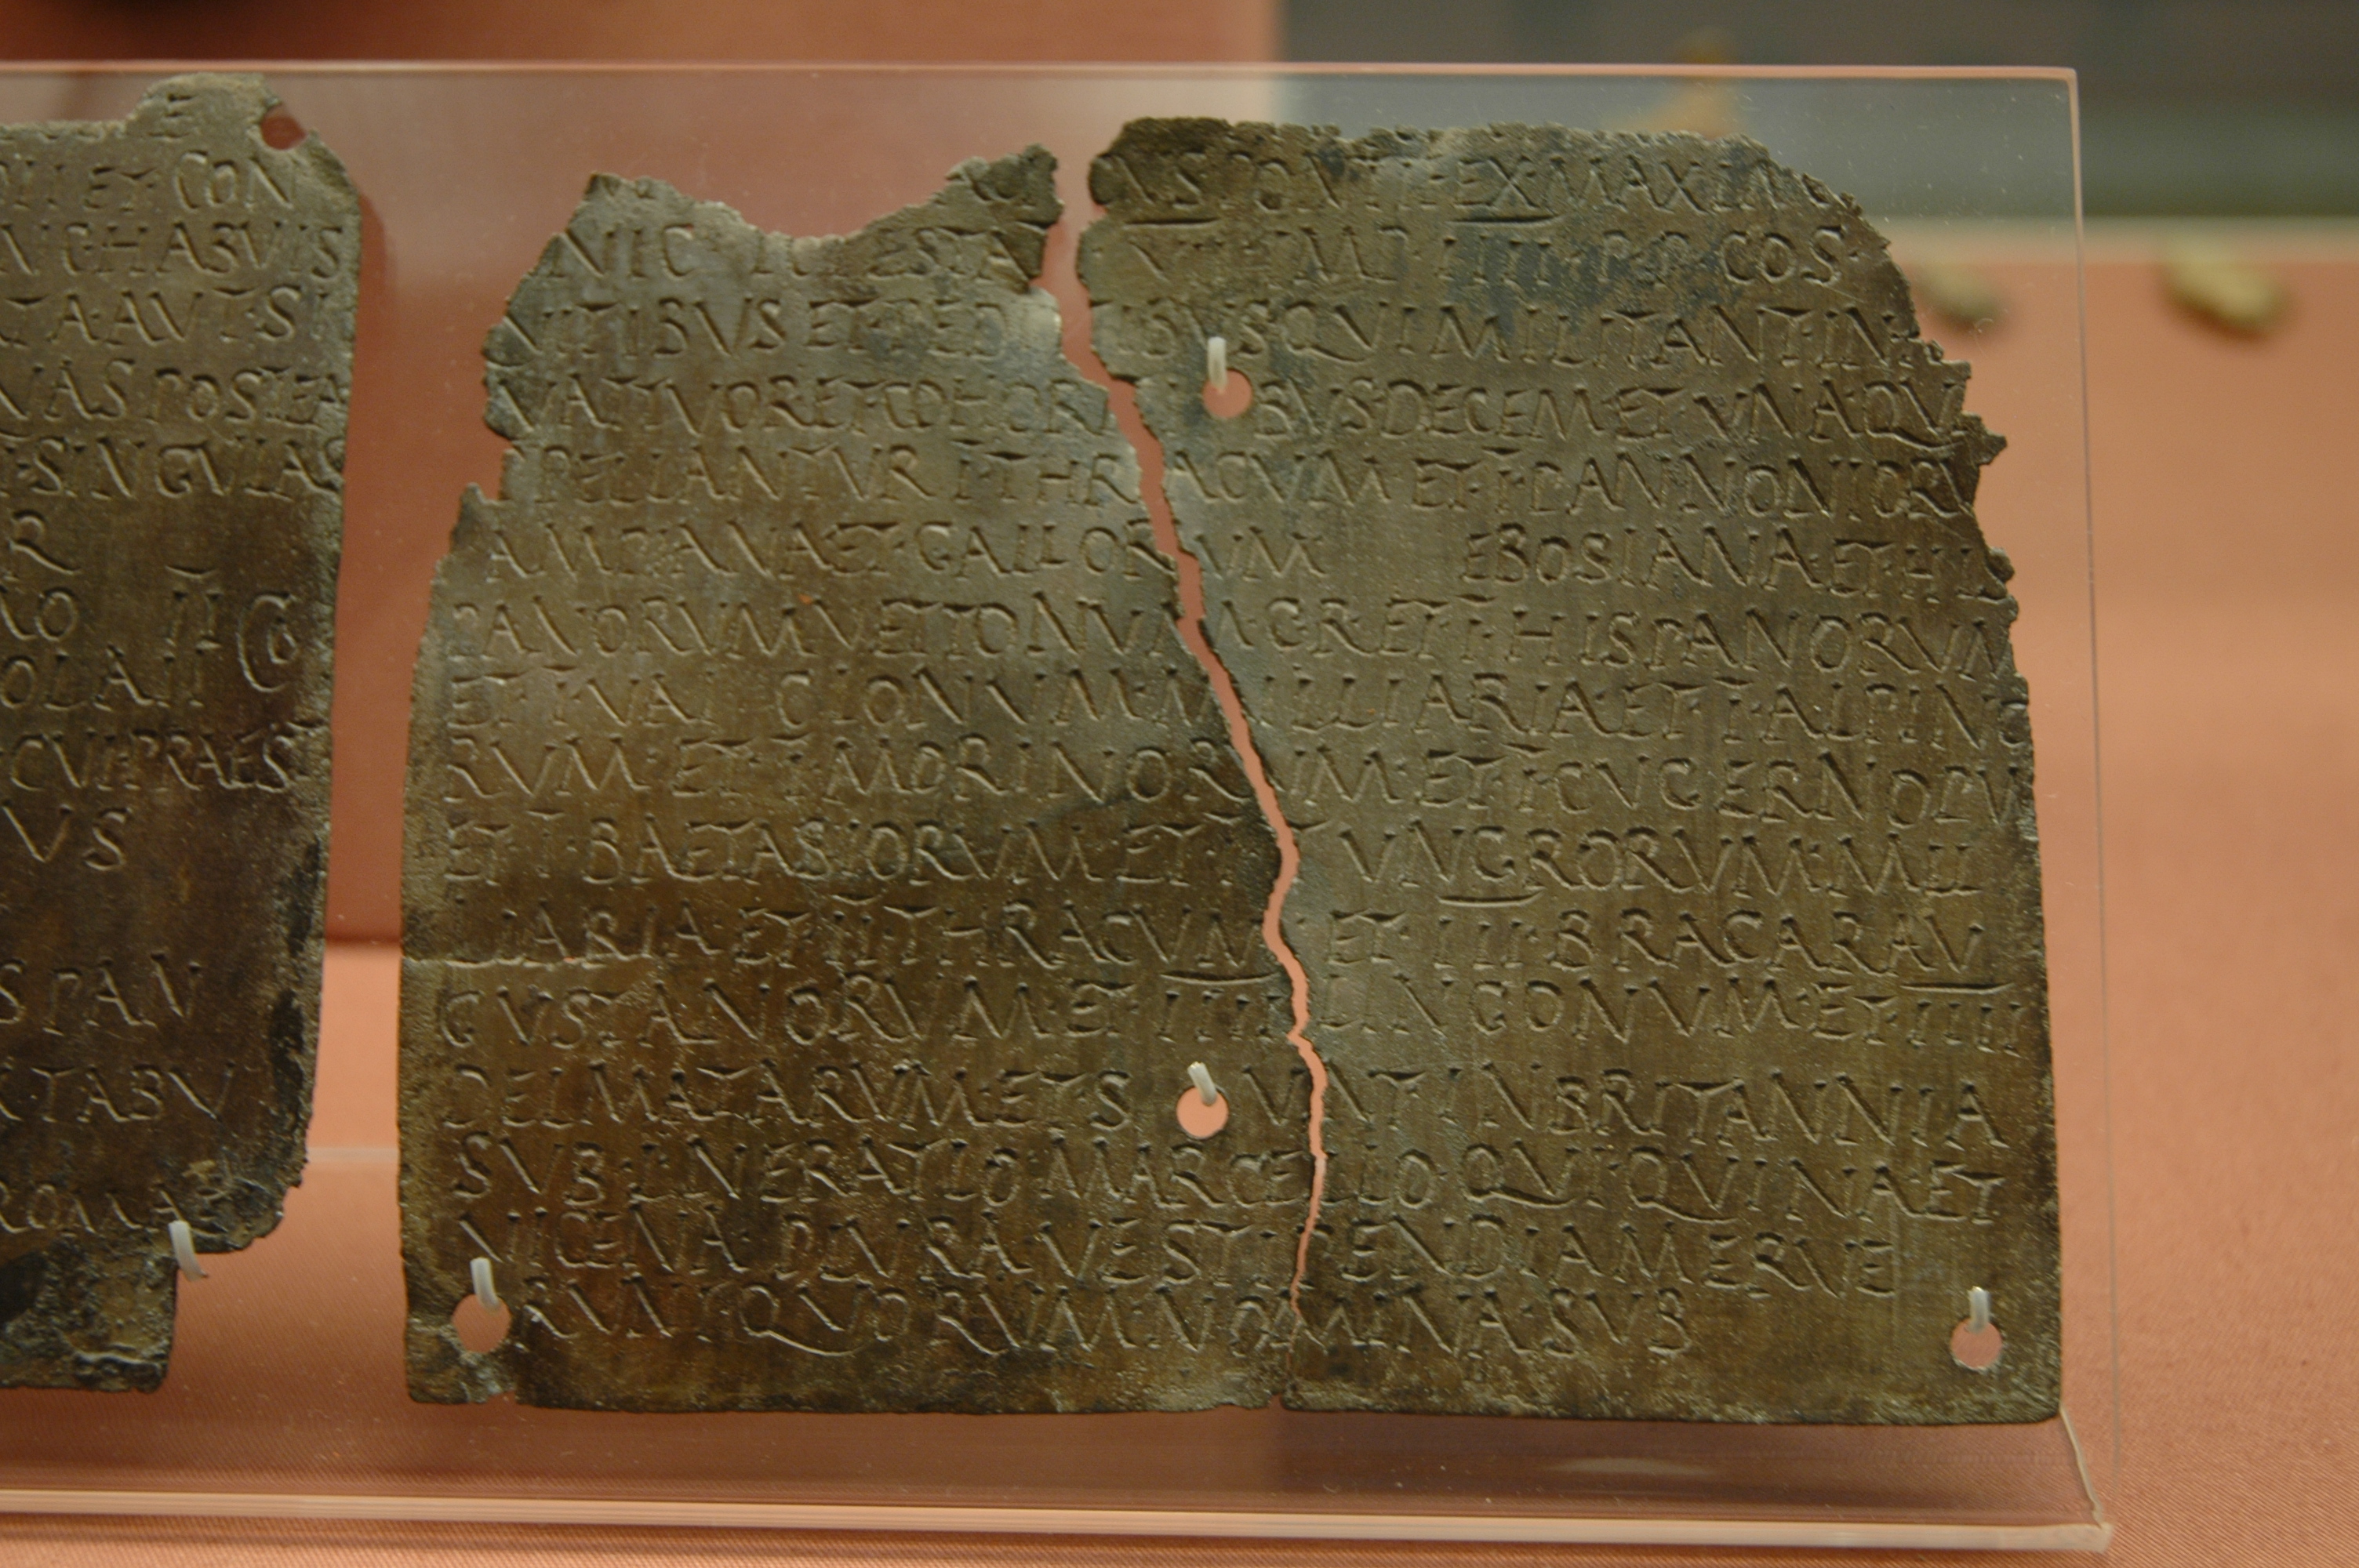 E
ET CON
HABVIS
TA AVT SI
POSTEA
SINGVLAS
R
II
OLAE
CVI PRAEST
VS
SPAN
TABV
ROMAE
VS PONTIFEX MAXIMV
NIC TESTAT VII IMP IIII P P COS
VITIBVS ET PED IBVS QVI MILITANT IN
VATTVOR ET COHORT BVS DECEM ET VNA QVA
PELLANTVR I THRACVM ET I PANNONIORV
AMPANA ET GALLORVM EBOSIANA ET HIS
PANORVM VETTONVM C R ET I HISPANORVM
ET I VA CIONVM MILLIARIA ET I ALPINO
RVM ET I MORINORVM ET I CVGERNORVM
ET I BAETASIORVM ET I TVNGRORVM MIL
LIARIA ET II THRACVM ET III BRACARAV
GVSTANORVM ET IIII LINGONVM ET IIII
DELMATARVM ET S VNT IN BRITANNIA
SVB L NERATIO MARCELLO QVI QVINA ET
VICENA PLVRAVE STIPENDIA MERVE
RVNT QVORVM NOMINA SVB